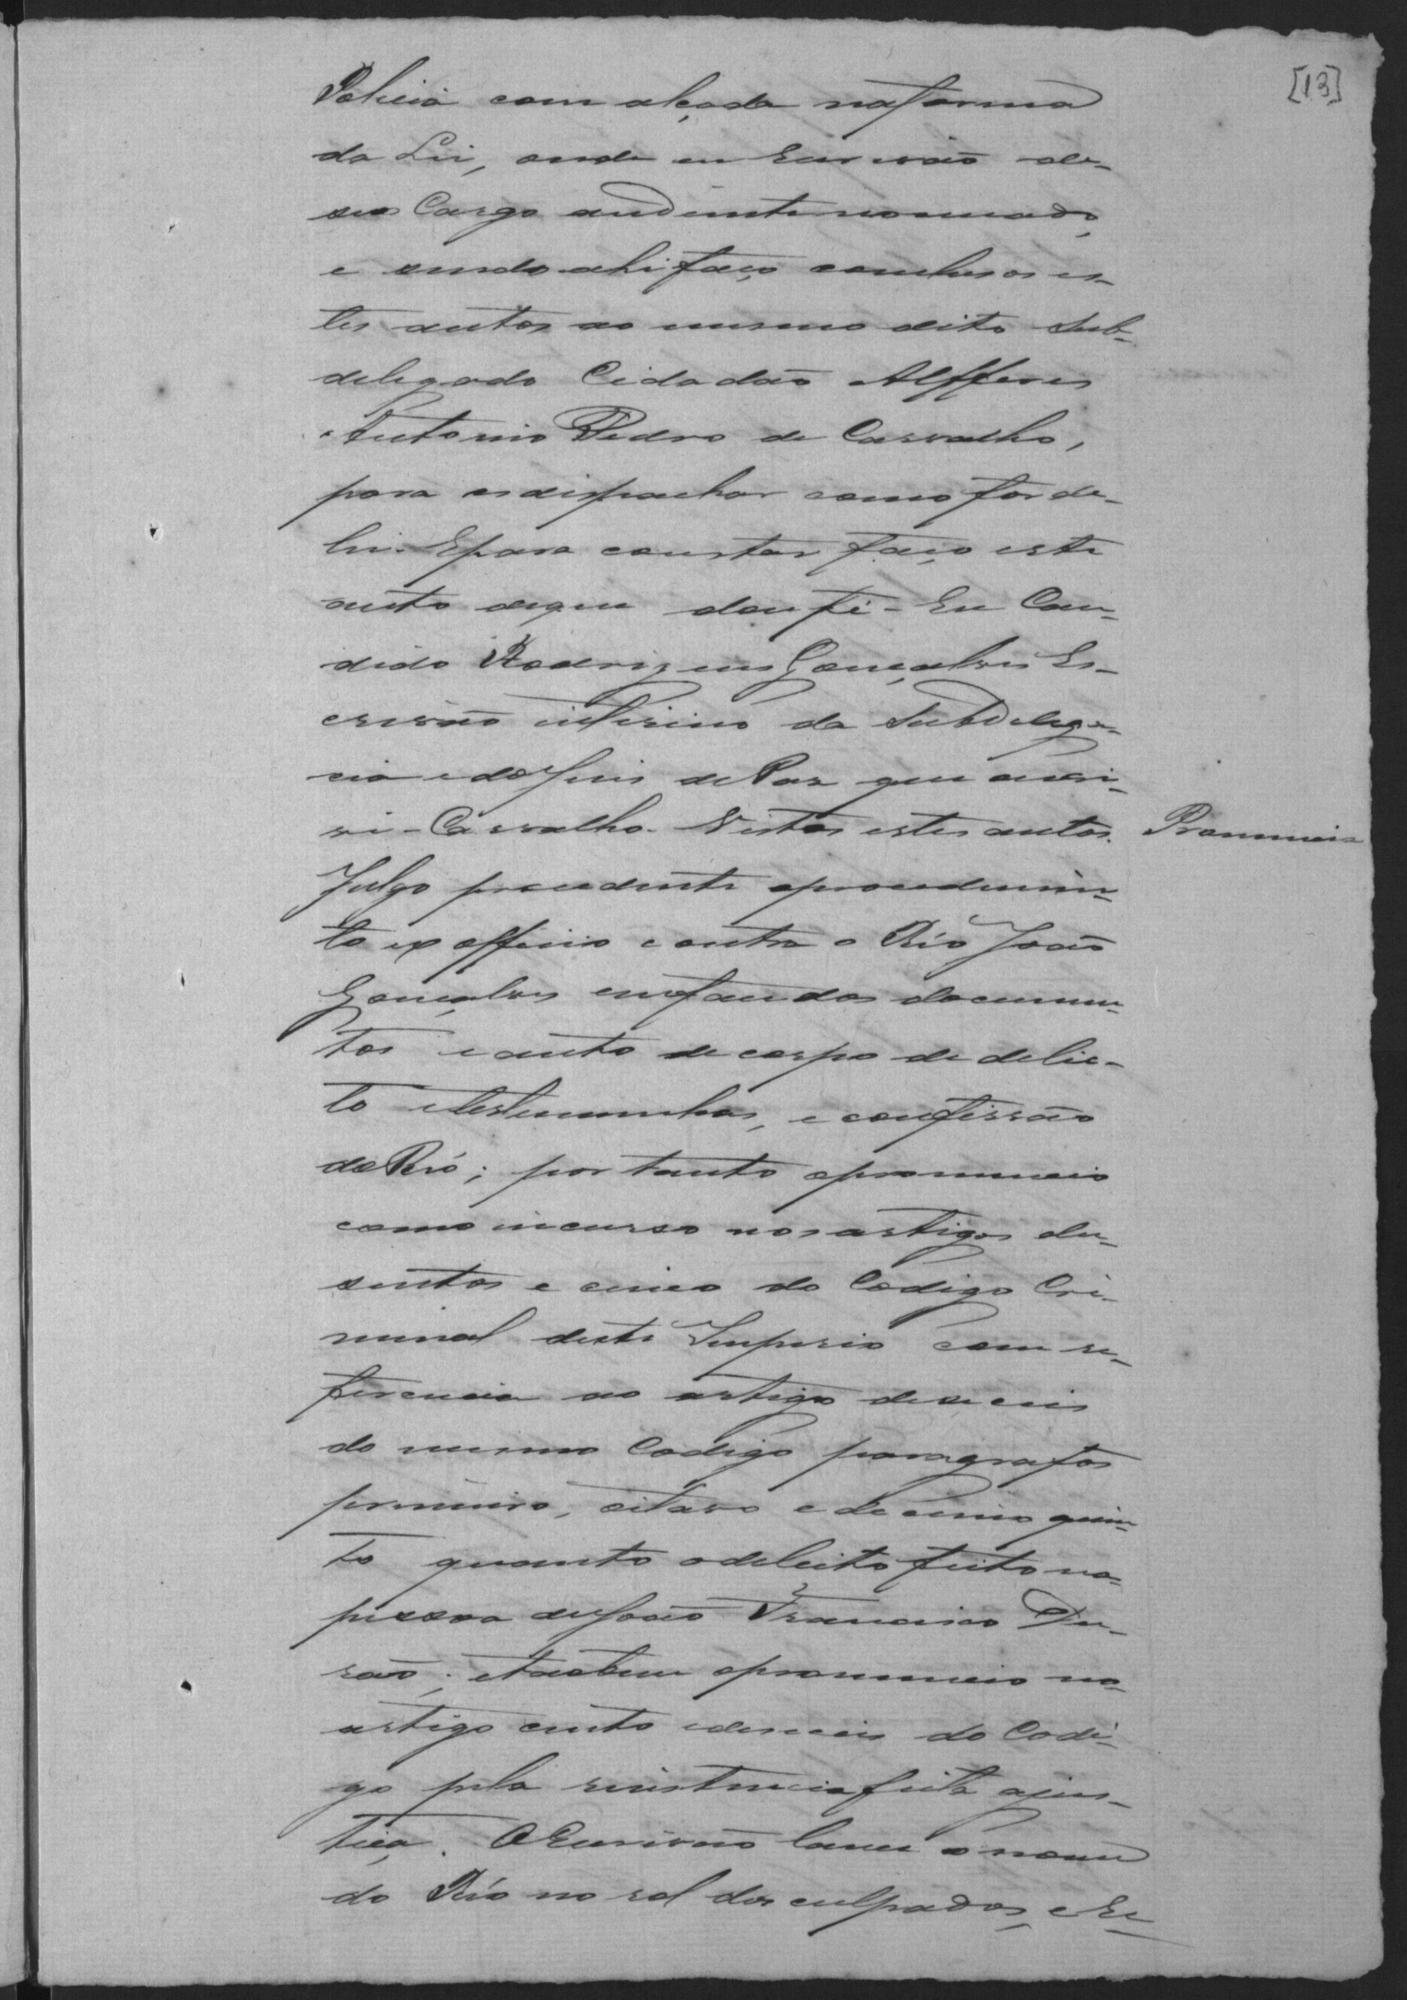 [13]
Policia com alçada na forma
da Lei, onde eu Escrivão de
seo Cargo audiante nomeado,
e sendo ahi faço conclusos es-
tes autos ao mesmo dito Sub-
delegado Cidadão Alfferes
Antonio Pedro de Carvalho,
para os dispachar como for de-
lei. E para constar faço este
auto de que dou fé - Eu Can-
dido Rodrigues Gonçalves Es-
crivão interino da Subdelega-
cia e do Juis de Paz que escri-
vi - Carvalho. Vistos estes autos.
Pronuncia
Julgo procedente o procedimen-
to ex officio contra o Réo João
Gonçalves em fau dos documen-
tos e auto de corpo de delic-
to e testemunhas, e confissão
do Reó; por tanto o pronuncio
como incurso nos artigos du-
sentos e cinco do Codigo Cri-
minal deste Imperio com re-
ferencia ao artigo deseceis
do mesmo Codigo paragrafos
primeiro, oitavo e decimo quin-
to quanto o deleito feito na
pessoa de João Francisco Du-
rão; e tãobem o pronuncio no
artigo cento e deseceis do Codi-
go pela resistencia feita a jus-
tiça. O Escrivão lance o nome
do Réo no rol dos culpados, e Re-